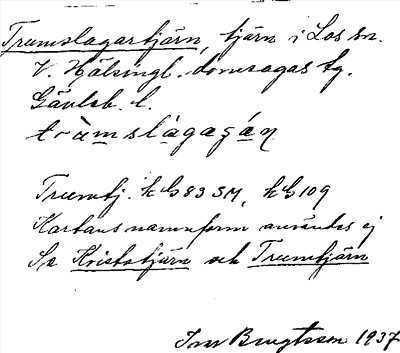 Trumslagartjärn, tjärn i Los sn.
V. Hälsingl. domsagas tg.
Gävleb. l.
tràmslàgagán
Trumtj. k G 83 SM, k G 109
Kartans namnform användes ej
Se Kviststjärn och Trumtjärn
Bengtsson 1937